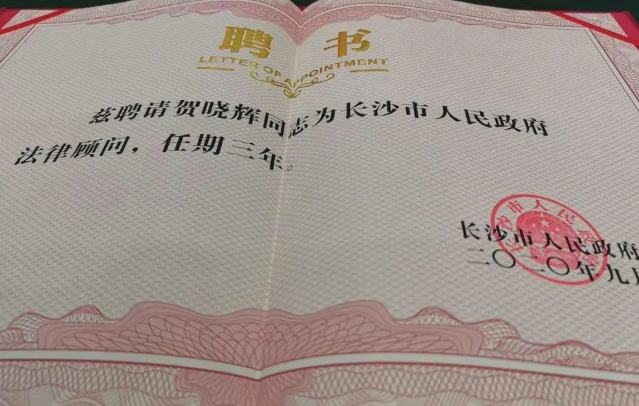 聘书
LETTER OF APPOINTMENT
兹聘请贺晓辉同志为长沙市人民政府
法律顾问，任期三年。
长沙市人民政府
二〇二〇年九月